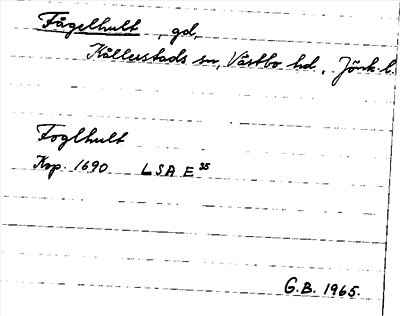 Fågelhult, gd,
Kållerstads sn, Västbo hd, Jönk. l.
Foglhult
Kop. 1690 LSA E 35
G.B. 1965.